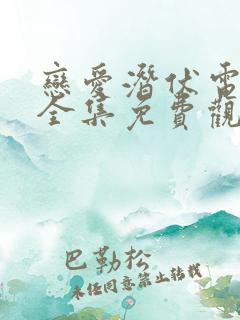 戀愛潛伏電
全集免費觀
巴勒松
未經同意禁止轉載